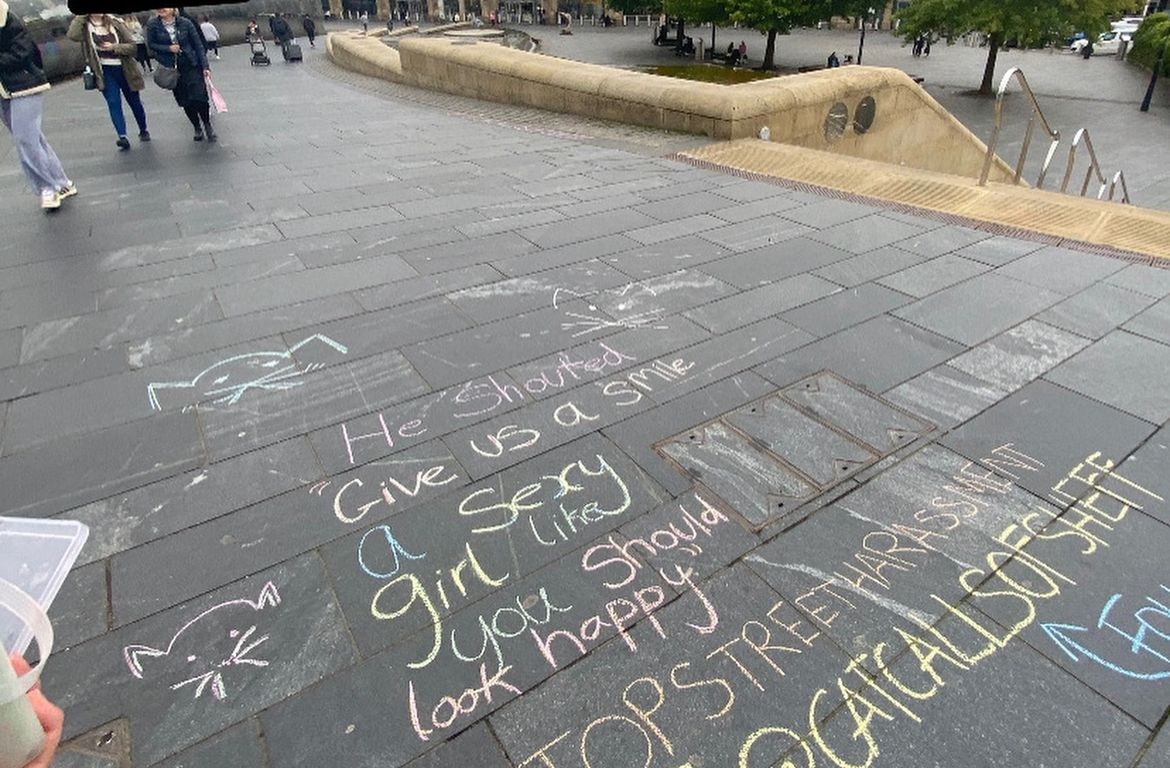 He Shouted
"Give us a smile
a Sexy
girl like
you Should
look happy"
TOPSTREETHARASSMENT
@CATCALLSOFSHEFF